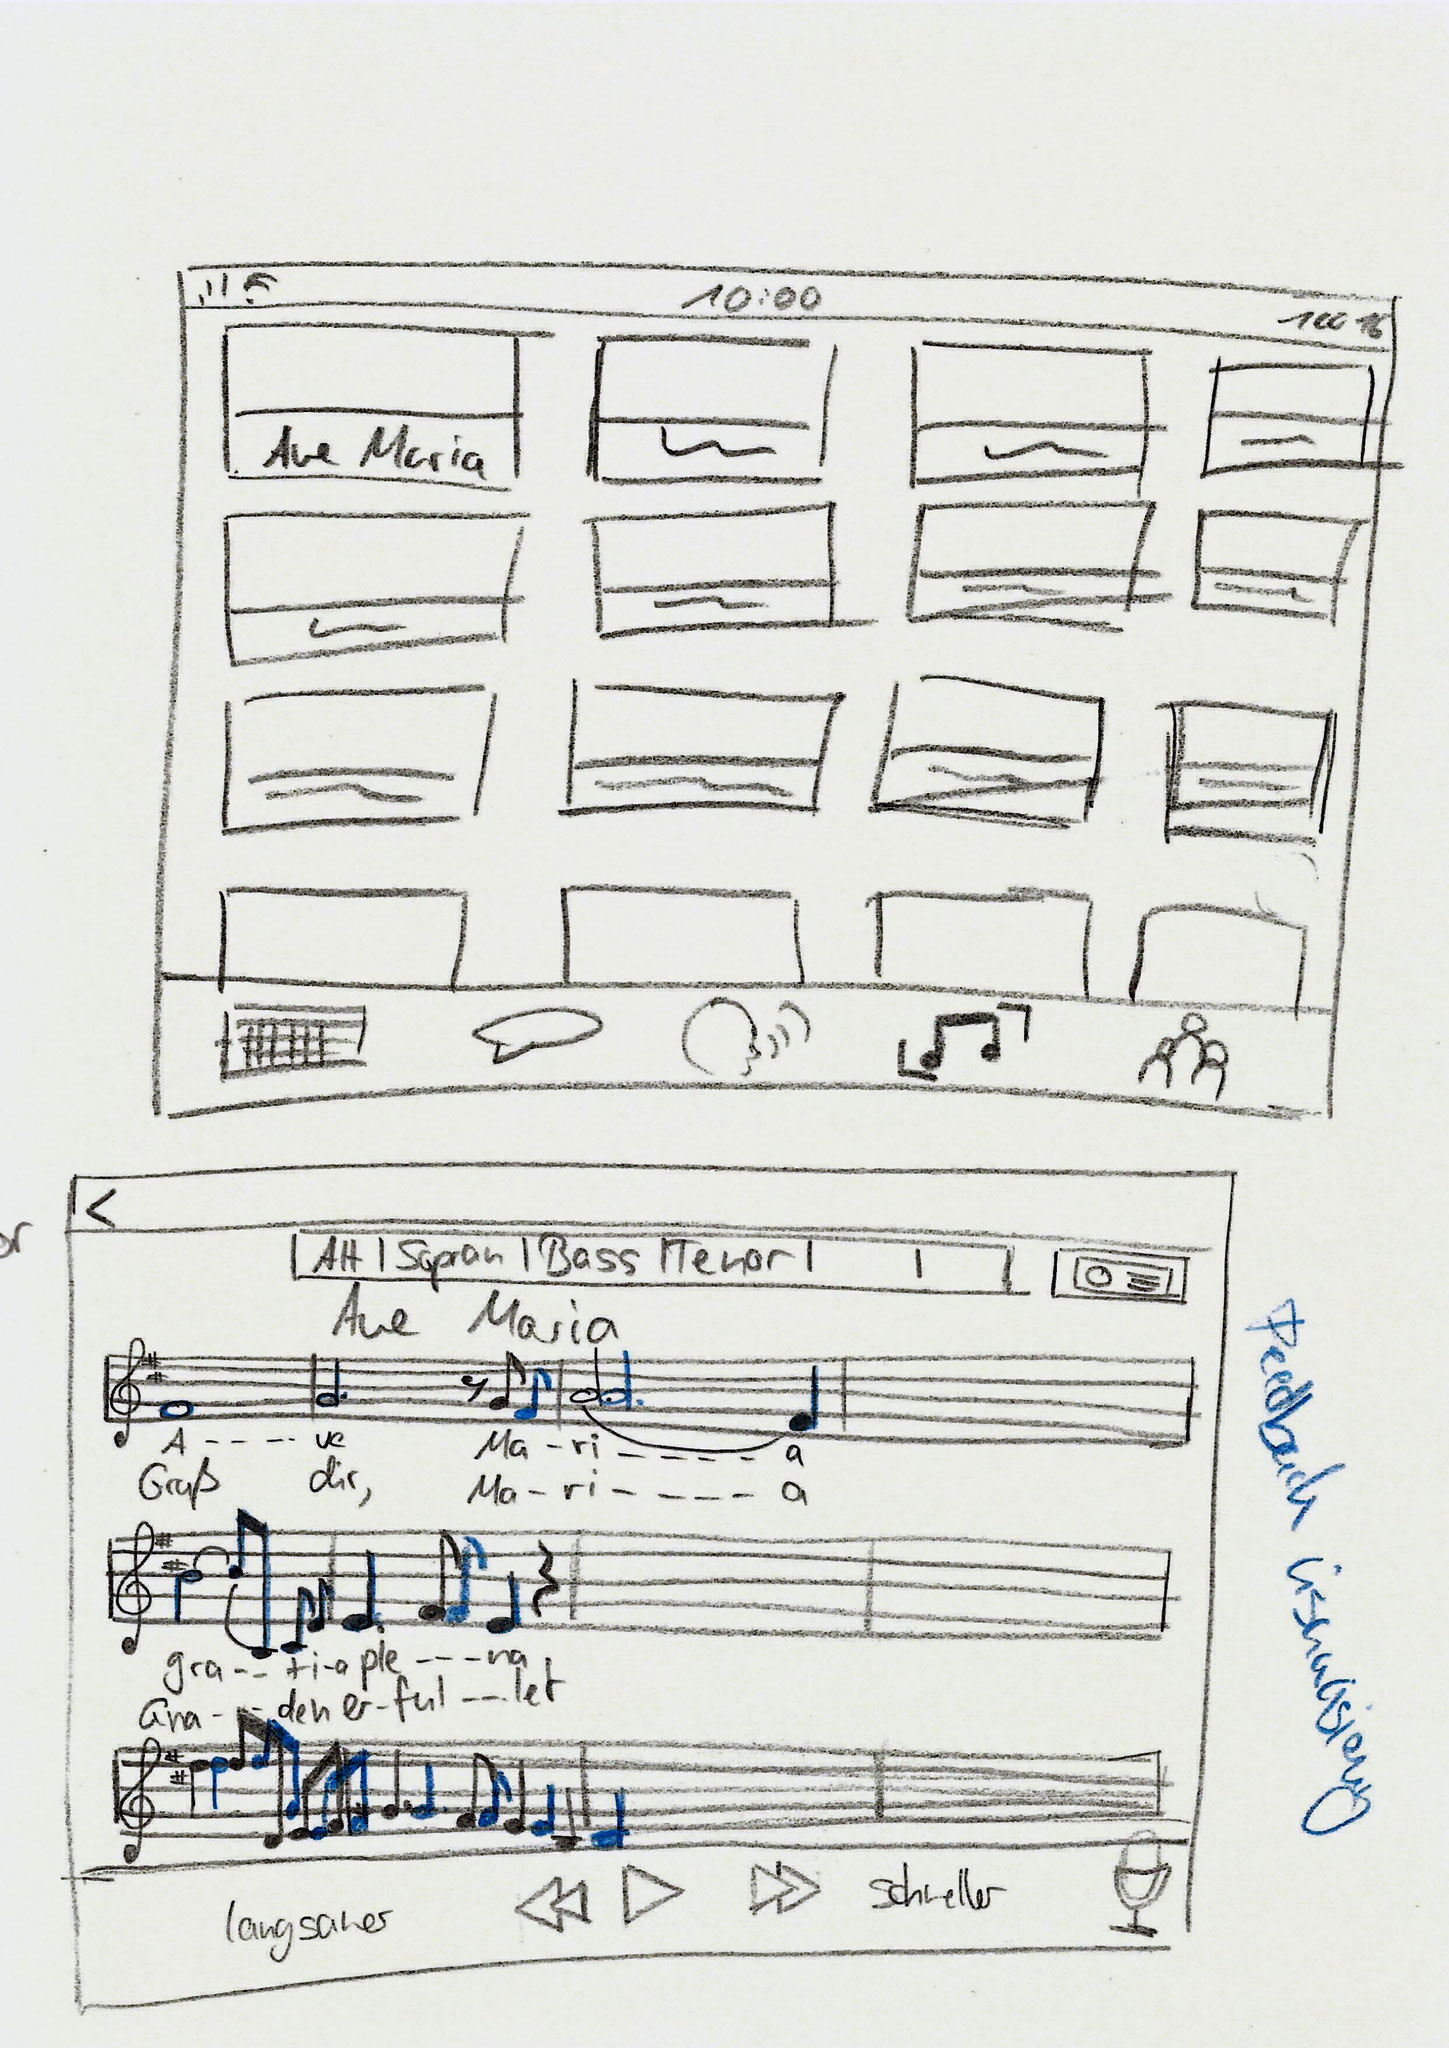 10:00
100 %
Ave Maria
or
<
Alt | Sopran | Bass | Tenor |
Ave Maria
A - - - - ve Ma - ri - - - - - a
Gruß dir, Ma - ri - - - - - a
gra - - ti - a ple - - - na
Gna - - - den er - ful - - - let
langsamer schneller
Feedback